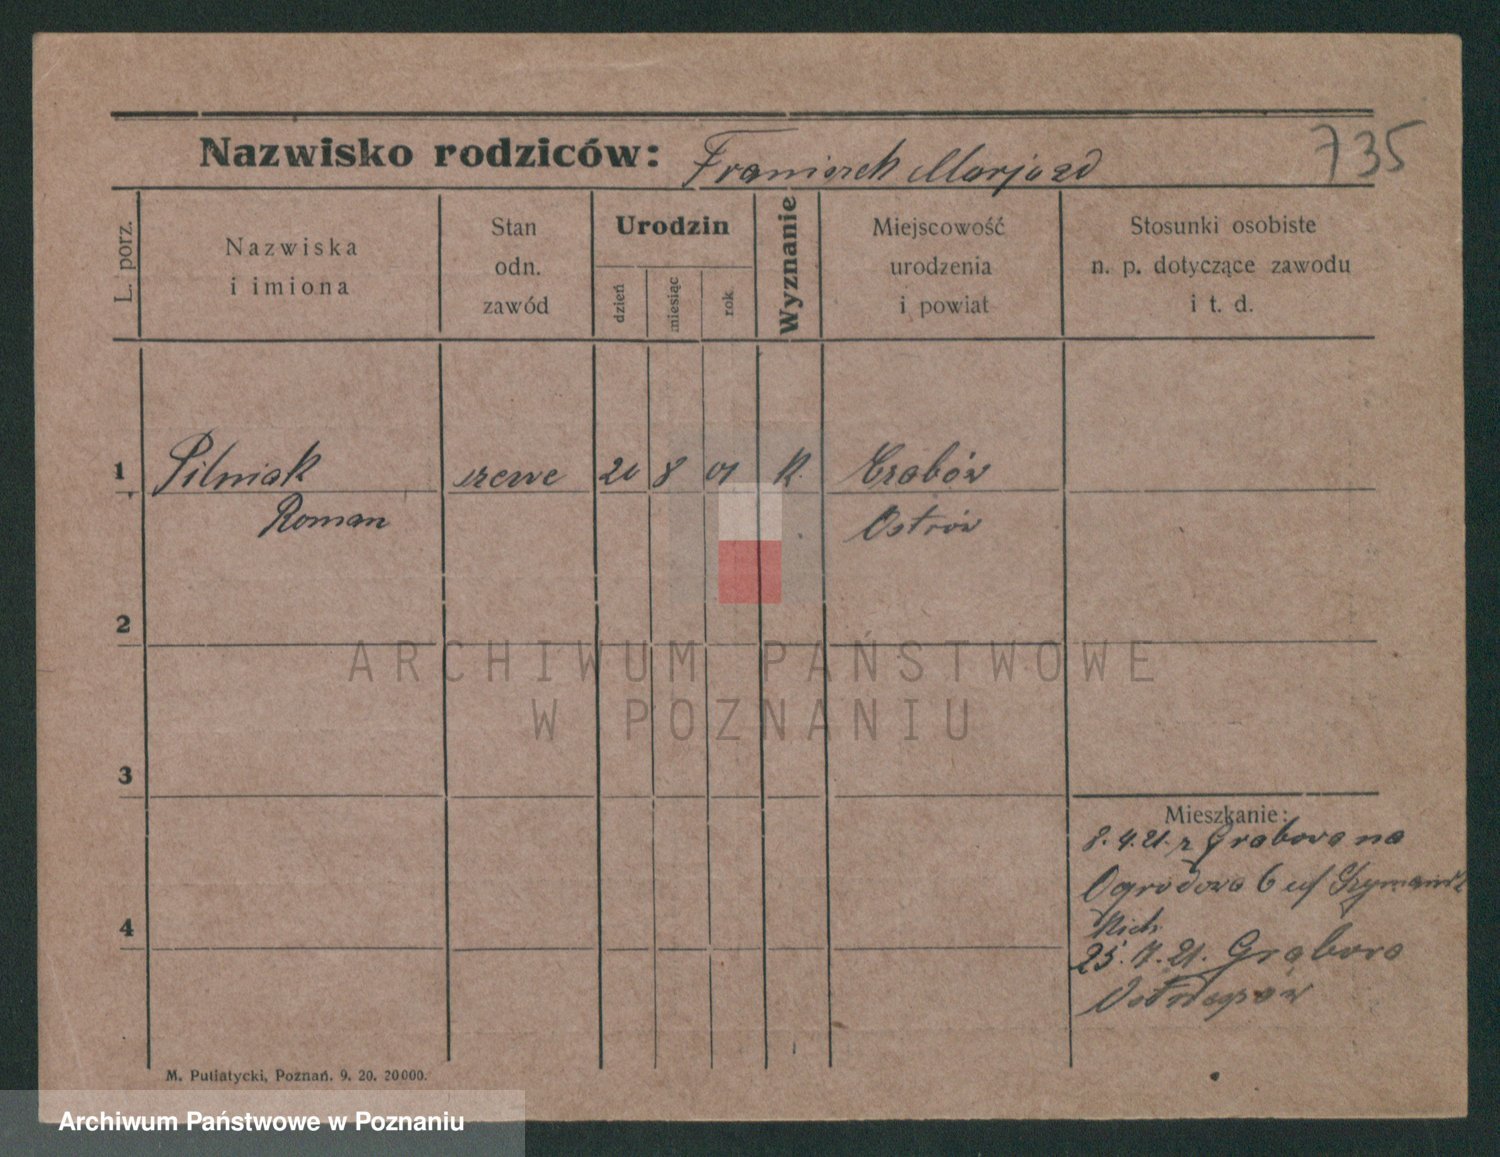 Nazwisko rodziców: Franciszek Marja zd
735
L. porz.
Nazwiska
i imiona
Stan
odn.
zawód
Urodzin
dzień
miesiąc
rok
Wyznanie
Miejscowość
urodzenia
i powiat
Stosunki osobiste
n. p. dotyczące zawodu
i t. d.
1 Pilniak 20 8 01 K. Grabów
Roman Ostrów
2
ARCHIWUM PAŃSTWOWE
W POZNANIU
3
Mieszkanie:
8.4.21. z Grabowa na
Ogrodowa 6
4
25. 21. Grabowa
M. Putiatycki, Poznań. 9. 20. 20000.
Archiwum Państwowe w Poznaniu